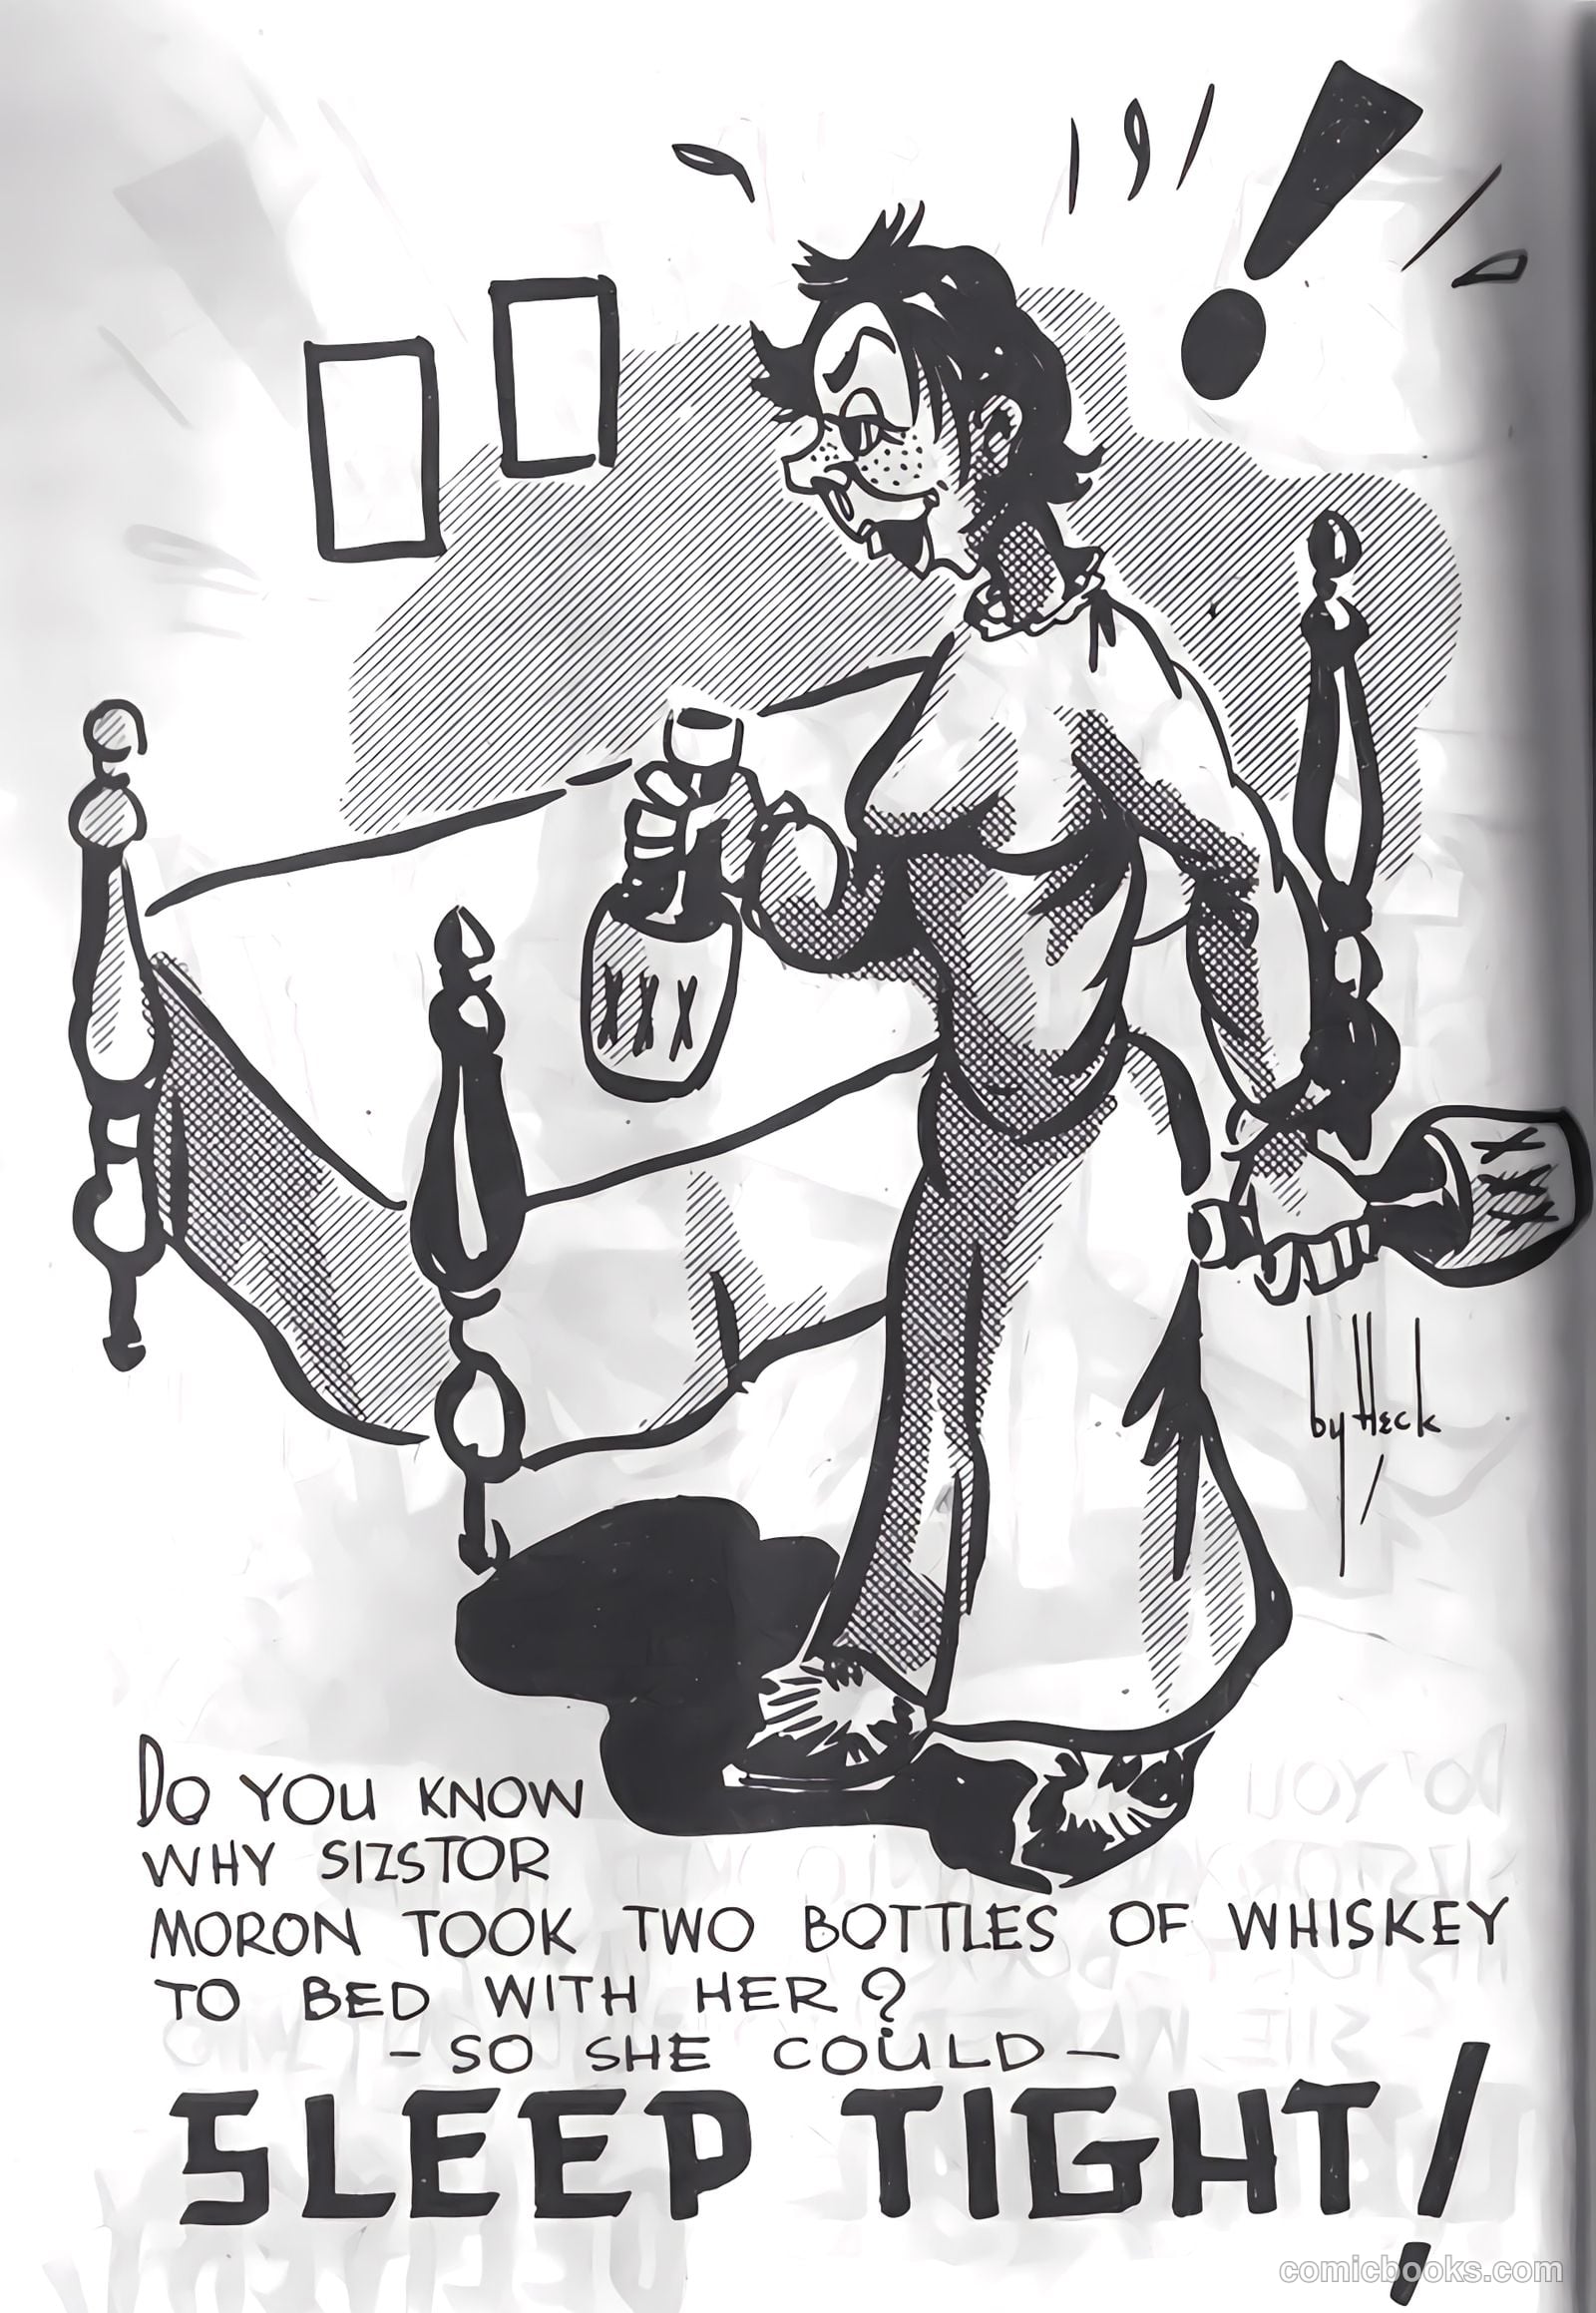 XXX
XXX
by Heck
DO YOU KNOW
WHY SIZSTOR
MORON TOOK TWO BOTTLES OF WHISKEY
TO BED WITH HER?
- SO SHE COULD -
SLEEP TIGHT!
comicbooks.com